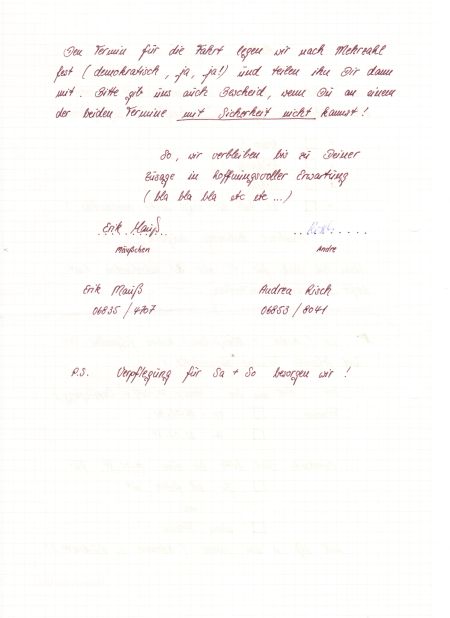 Den Termin für die Fahrt legen wir nach Mehrzahl
fest (demokratisch, ja, ja!) und teilen ihn Dir dann
mit. Bitte gib uns auch Bescheid, wenn Du an einem
der beiden Termine mit Sicherheit nicht kannst!
So, wir verbleiben bis zu Deiner
Zusage in hoffnungsvoller Erwartung
(bla bla bla etc etc ...)
Erik Mauß
Mäußchen
Andre
Erik Mauß
Andrea Risch
06835 / 4707
06853 / 8041
P.S. Verpflegung für Sa + So besorgen wir !